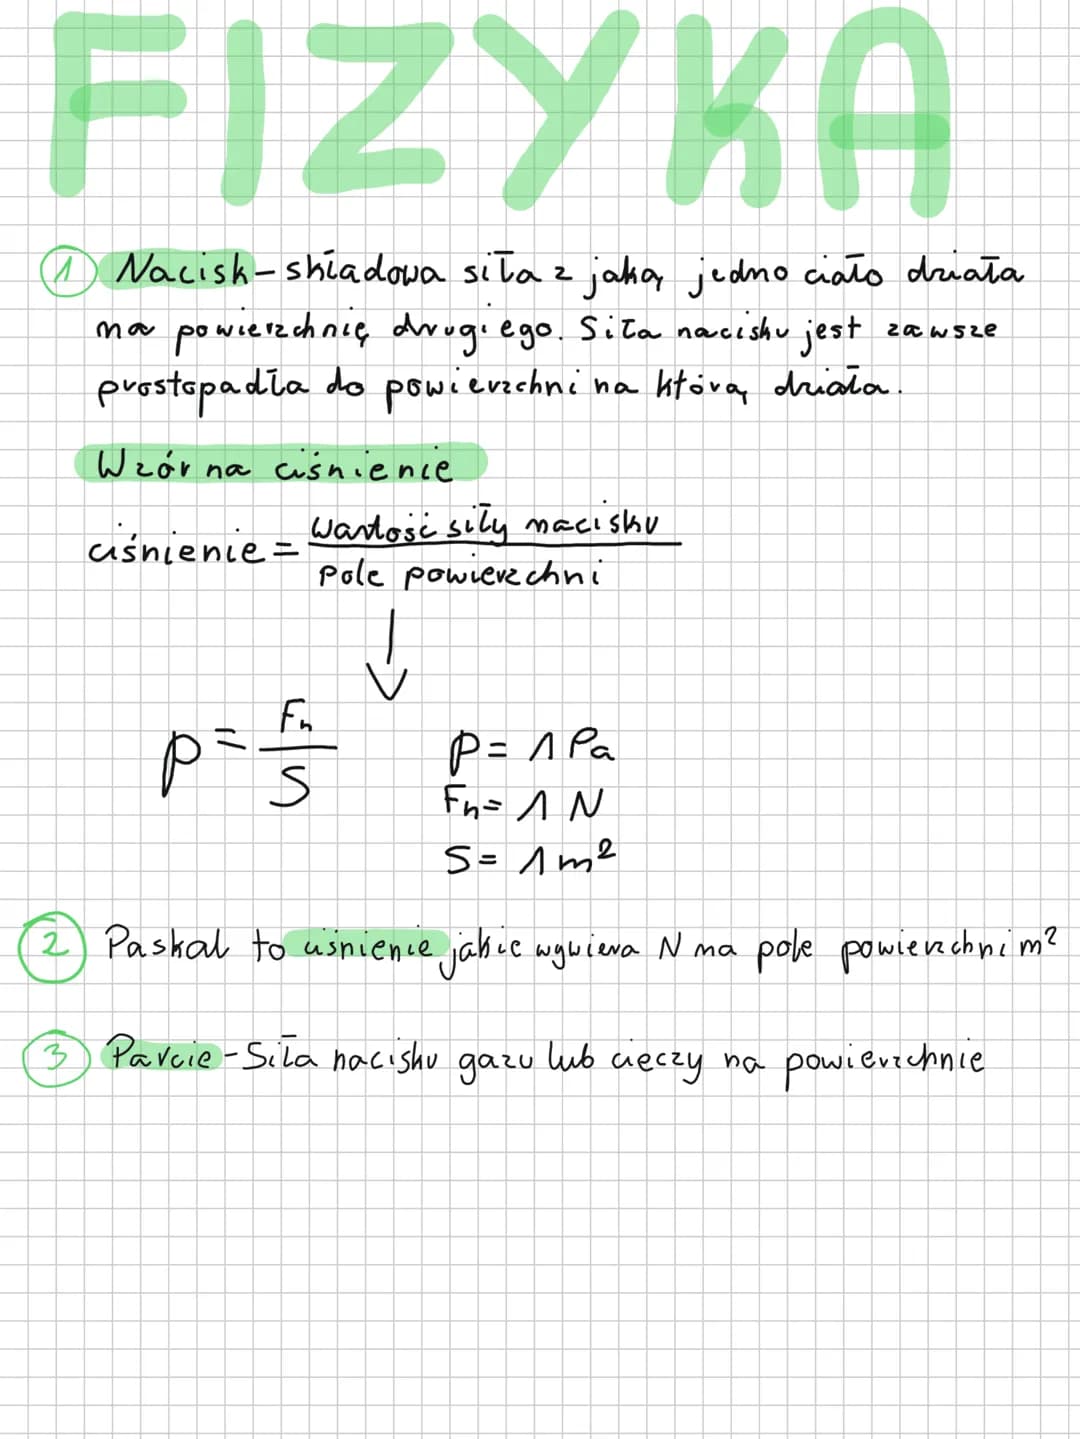 FIZYKA
1 Nacisk - składowa siła z jaką jedno ciało działa
na powierzchnię drugiego. Siła nacisku jest zawsze
prostopadła do powierzchni na którą działa.
Wzór na ciśnienie
ciśnienie = wartość siły nacisku
pole powierzchni
↓
p = Fn / S
p = 1 Pa
Fn = 1 N
S = 1 m²
2 Paskal to ciśnienie jakie wywiera N na pole powierzchni m²
3 Parcie - Siła nacisku gazu lub cieczy na powierzchnie